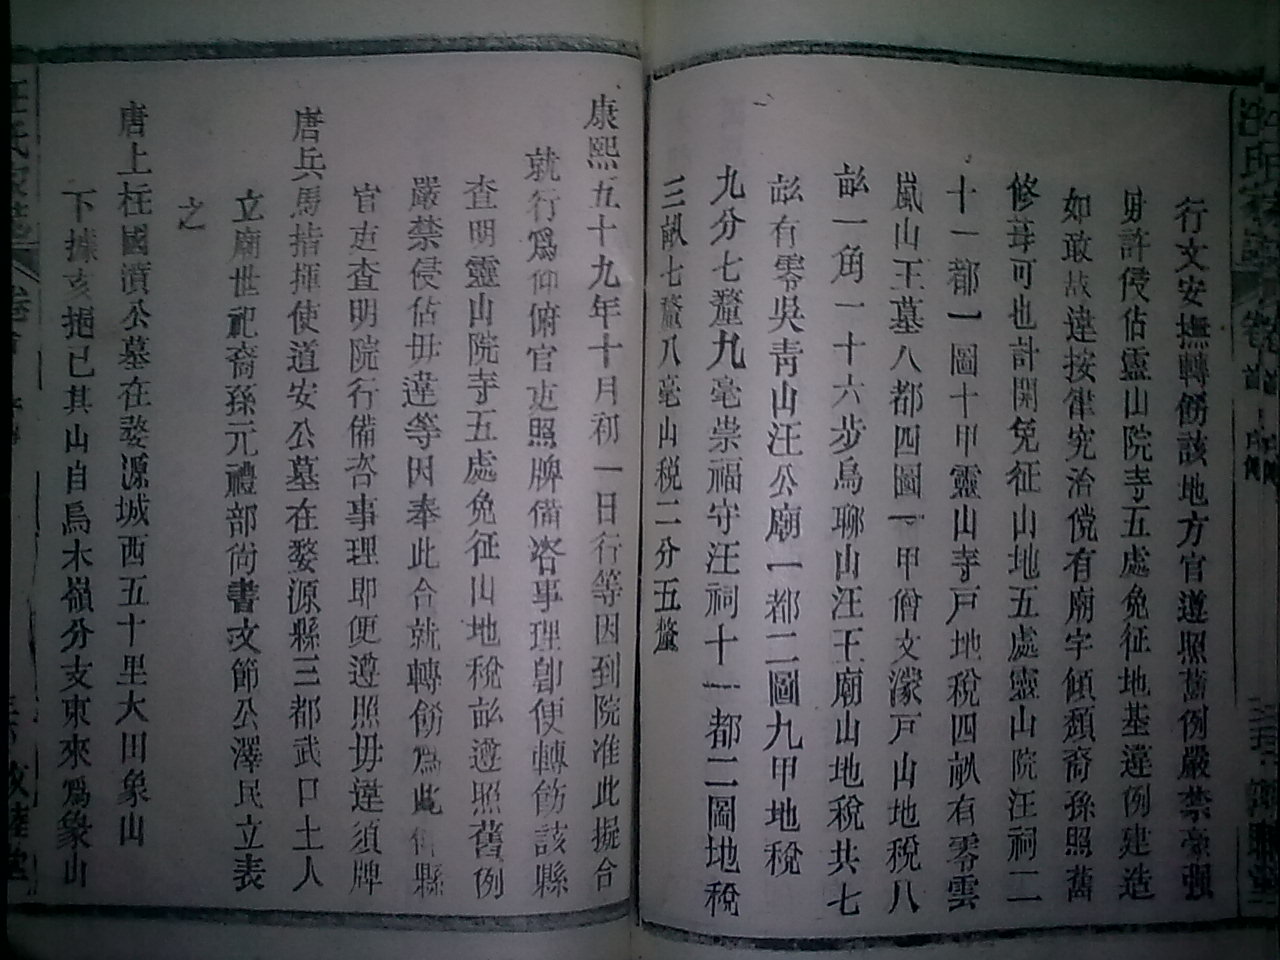 行文安撫轉飭該地方官遵照舊例嚴禁豪强
毋許侵佔靈山院寺五處免征地基違例建造
如敢故違按律究治儻有廟宇傾頹裔孫照舊
修葺可也計開免征山地五處靈山院汪祠二
十一都一圖十甲靈山寺戶地稅四畝有零雲
嵐山王墓八都四圖一甲僧文濛戶山地稅八
畝一角一十六步烏聊山汪王廟山地稅共七
畝有零吳青山汪公廟一都二圖九甲地稅
九分七釐九毫崇福守汪祠十一都二圖地稅
三畝七釐八毫山稅二分五釐
康熙五十九年十月初一日行等因到院准此擬合
就行爲仰俯官吏照牌備咨事理卽便轉飭該縣
查明靈山院寺五處免征山地稅畝遵照舊例
嚴禁侵佔毋違等因奉此合就轉飭爲此仰縣
官吏查明院行備咨事理即便遵照毋違須牌
唐兵馬指揮使道安公墓在婺源縣三都武口土人
立廟世祀裔孫元禮部尚書文節公澤民立表
之
唐上柱國濆公墓在婺源城西五十里大田象山
下據亥挹巳其山自烏木嶺分支東來爲象山